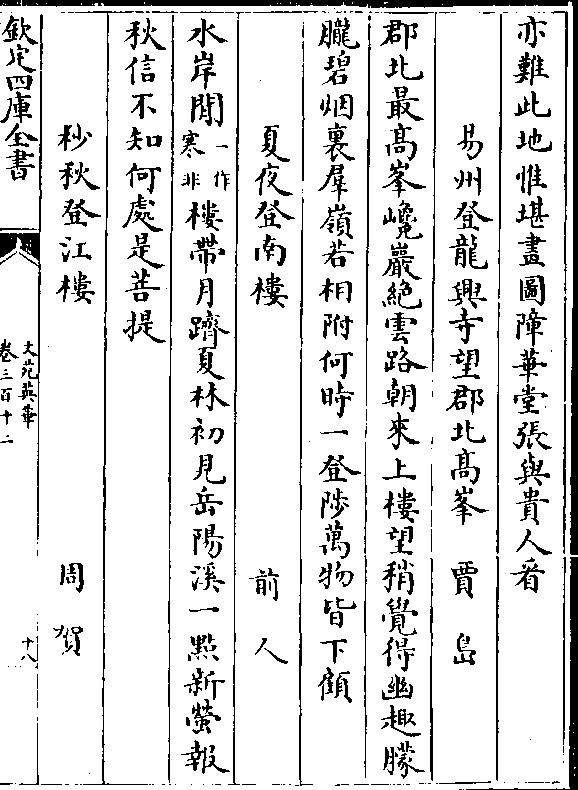 亦難此地惟堪畫圖障華堂張與貴人看
易州登龍興寺望郡北髙峯　賈島
郡北最髙峯巉巖絶雲路朝來上樓望稍覺得幽趣朦
朧碧烟裏羣嶺若相附何時一登陟萬物皆下顧
夏夜登南樓　前人
水岸閒一作寒非樓帶月躋夏林初見岳陽溪一點新螢報
秋信不知何處是菩提
杪秋登江樓　周賀
欽定四庫全書
文苑英華
卷三百十二
十八